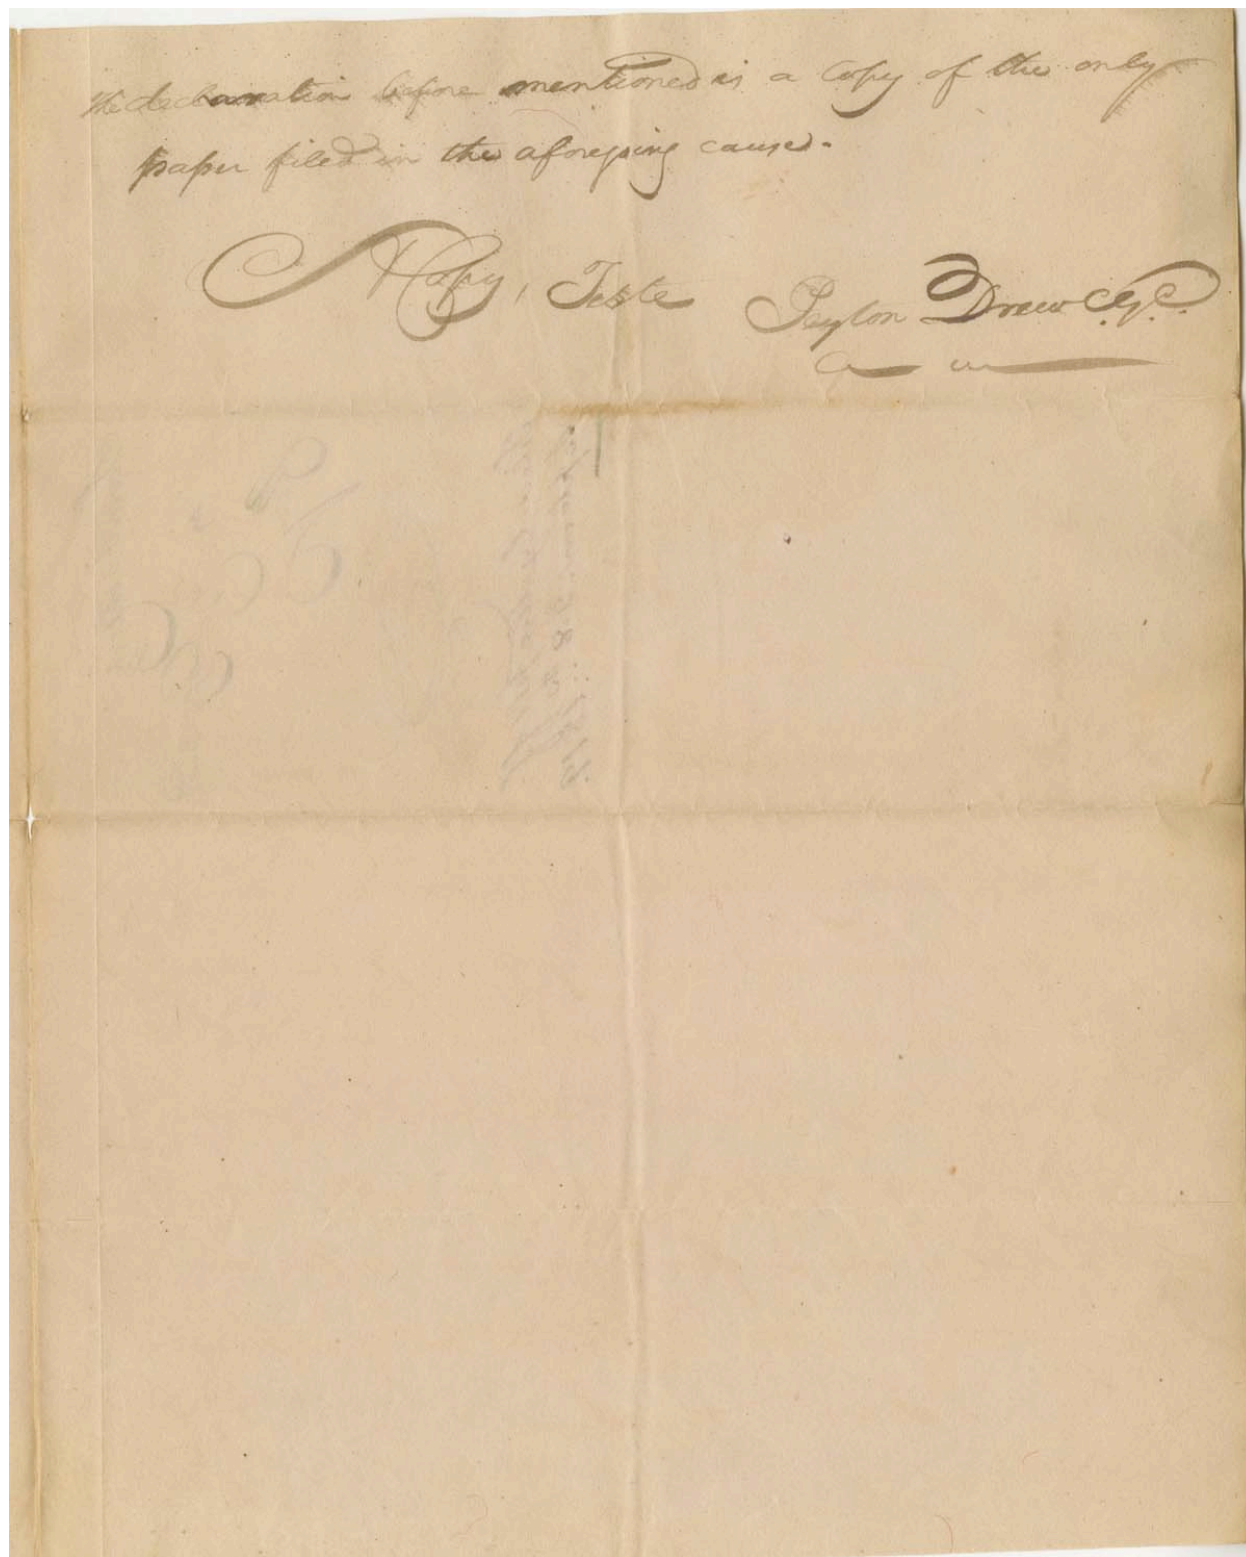 the declaration before mentioned is a copy of the only
paper filed in the aforegoing cause.
A Copy, Teste Peyton Drew C.G.C.